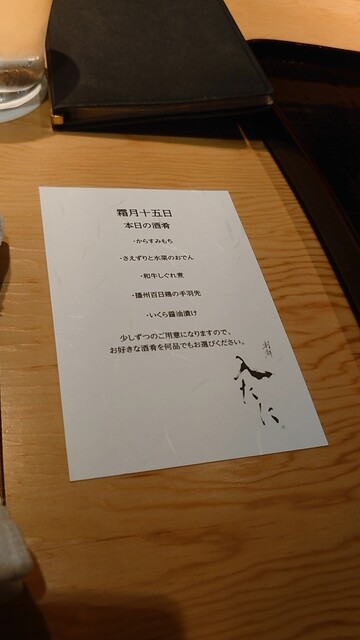 霜月十五日
本日の酒肴
・からすみもち
・さえずりと水菜のおでん
・和牛しぐれ煮
・播州百日鶏の手羽先
・いくら醤油漬け
少しずつのご用意になりますので、
お好きな酒肴を何品でもお選びください。